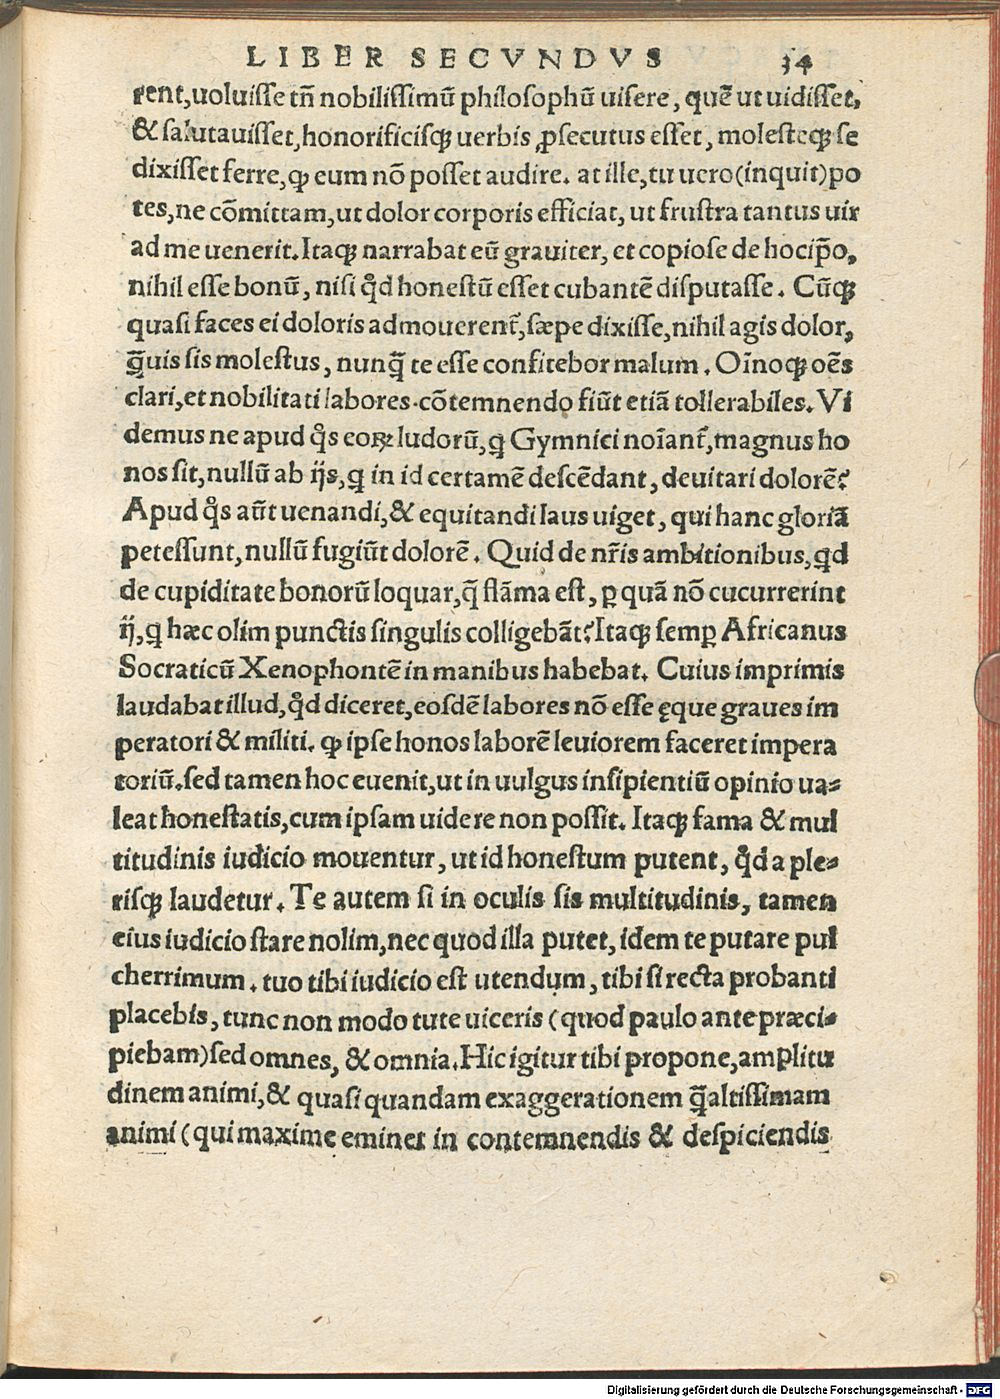 LIBER SECVNDVS 34
rent,uoluiſſe tñ nobiliſſimū philoſophū uiſere, quē ut uidiſſet,
& ſalutauiſſet,honorificiſqꝫ uerbis ꝓſecutus eſſet, moleſteqꝫ ſe
dixiſſet ferre,ꝙ eum nō poſſet audire. at ille,tu uero(inquit)po
tes,ne cōmittam,ut dolor corporis efficiat, ut fruſtra tantus uir
ad me uenerit.Itaqꝫ narrabat eū grauiter, et copioſe de hocip̄o,
nihil eſſe bonū, niſi qͦd honeſtū eſſet cubantē diſputaſſe. Cūqꝫ
quaſi faces ei doloris admouerent᷑,ſæpe dixiſſe,nihil agis dolor,
q̄uis sis moleſtus, nunq̄ te eſſe confitebor malum. Oīnoqꝫ oēs
clari,et nobilitati labores.cōtemnendo fiūt etiā tollerabiles. Vi
demus ne apud qͦs eoꝝ ludorū,q Gymnici noīant᷑,magnus ho
nos ſit,nullū ab ijs,q in id certamē deſcēdant, deuitari dolorē?
Apud qͦs aūt uenandi,& equitandi laus uiget, qui hanc gloriā
peteſſunt,nullū fugiūt dolorē. Quid de nr̄is ambitionibus,qd
de cupiditate bonorū loquar,q̄ flāma eſt, ꝑ quā nō cucurrerint
ij,q hæc olim punctis ſingulis colligebāt?Itaqꝫ ſemꝑ Africanus
Socraticū Xenophontē in manibus habebat. Cuius imprimis
laudabat illud,qͦd diceret,eoſdē labores nō eſſe ęque graues im
peratori & militi. ꝙ ipſe honos laborē leuiorem faceret impera
toriū.ſed tamen hoc euenit,ut in uulgus inſipientiū opinio ua-
leat honeſtatis,cum ipſam uidere non poſſit. Itaqꝫ fama & mul
titudinis iudicio mouentur, ut id honeſtum putent, qͦd a ple-
riſqꝫ laudetur. Te autem ſi in oculis ſis multitudinis, tamen
eius iudicio ſtare nolim,nec quod illa putet, idem te putare pul
cherrimum. tuo tibi iudicio eſt utendum, tibi ſi recta probanti
placebis, tunc non modo tute uiceris (quod paulo ante præci-
piebam)ſed omnes, & omnia.Hic igitur tibi propone,amplitu
dinem animi,& quaſi quandam exaggerationem q̄altiſſimam
animi (qui maxime eminet in contemnendis & deſpiciendis
Digitalisierung gefördert durch die Deutsche Forschungsgemeinschaft - DFG